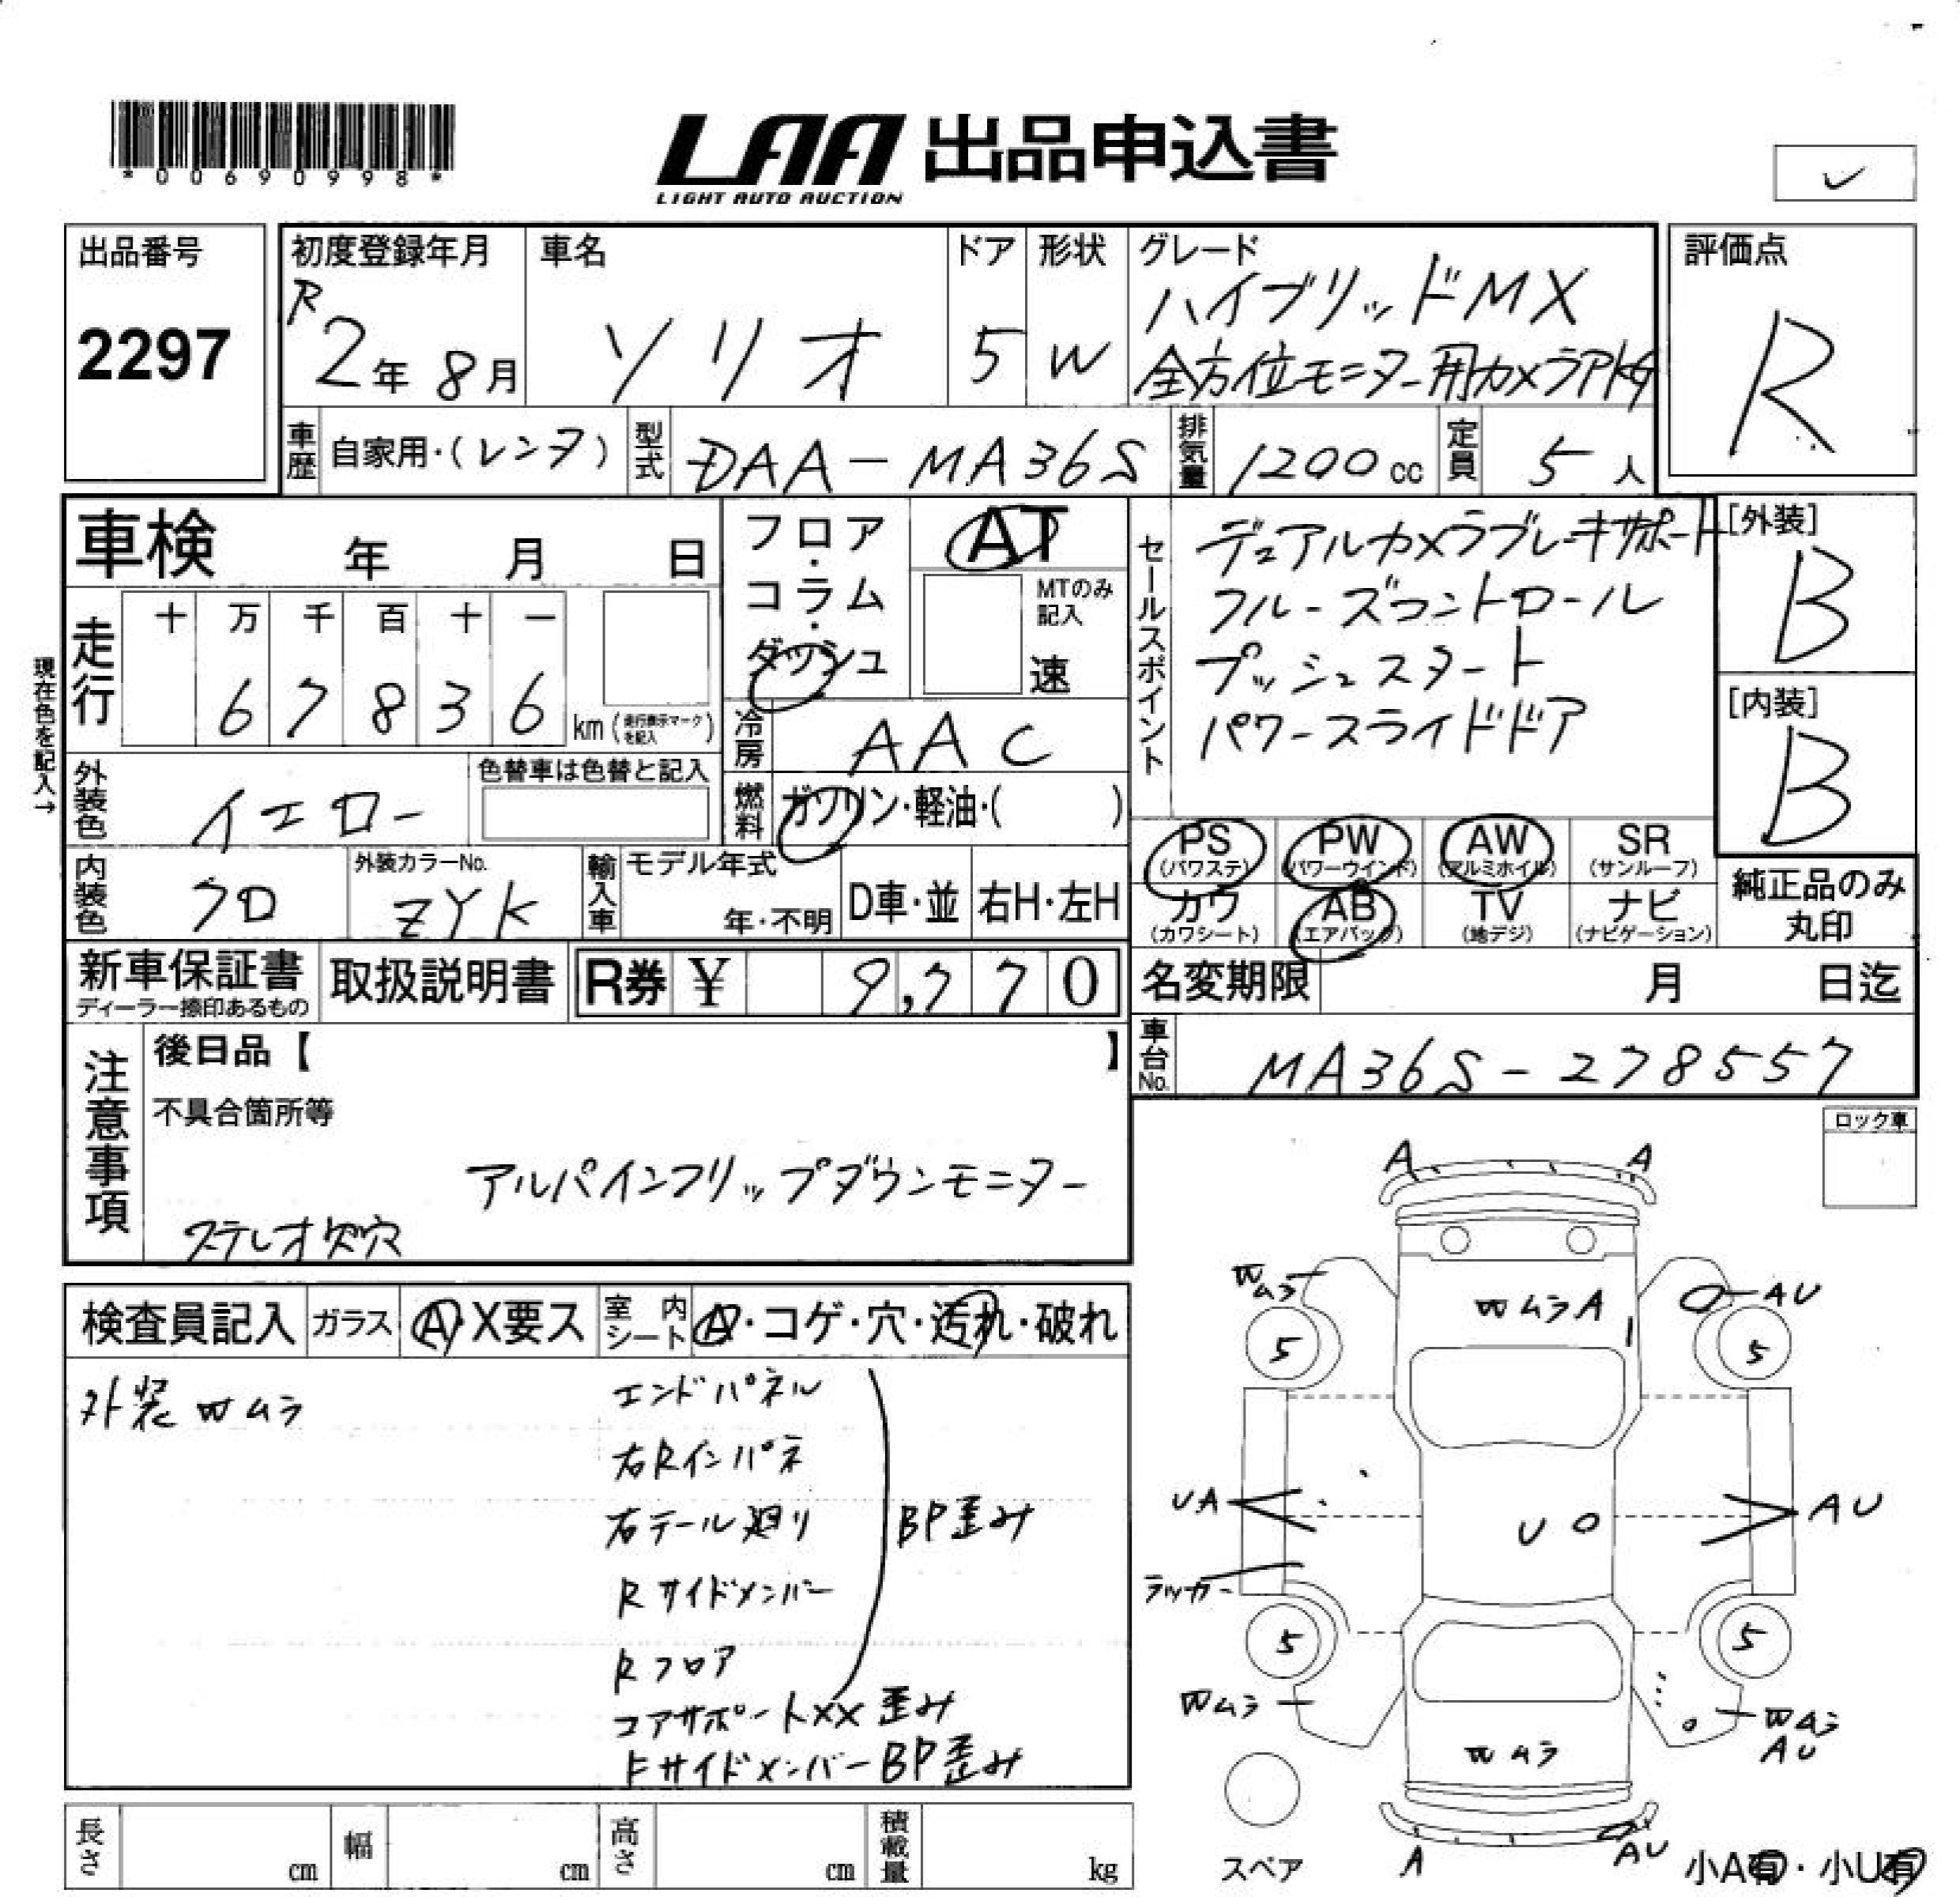 *00690998*
LAA 出品申込書
LIGHT AUTO AUCTION
出品番号
2297
初度登録年月
R2年 8月
車名
ソリオ
ドア
5
形状
W
グレード
ハイブリッドMX
全方位モニター用カメラPKG
評価点
R
車歴 自家用・(レンタ)
型式 DAA-MA36S
排気量 1200cc
定員 5人
車検 年 月 日
フロア・コラム・ダッシュ
AT
MTのみ記入
速
セールスポイント
デュアルカメラブレーキサポート
クルーズコントロール
プッシュスタート
パワースライドドア
[外装]
B
[内装]
B
現在色を記入→
走行
十 万 千 百 十 一
6 7 8 3 6 km (走行表示マークを記入)
冷房 AAC
外装色 イエロー
色替車は色替と記入
燃料 ガソリン・軽油・( )
PS (パワステ)
PW (パワーウインド)
AW (アルミホイル)
SR (サンルーフ)
カワ (カワシート)
AB (エアバック)
TV (地デジ)
ナビ (ナビゲーション)
純正品のみ丸印
内装色 クロ
外装カラーNo. ZYK
輸入車 モデル年式
年・不明
D車・並
右H・左H
新車保証書
ディーラー捺印あるもの
取扱説明書
R券 ¥ 9,770
名変期限 月 日迄
車台No. MA36S-278557
注意事項
後日品【 】
不具合箇所等
アルパインフリップダウンモニター
ステレオ欠穴
ロック車
検査員記入
ガラス A X要ス
室内シート A・コゲ・穴・汚れ・破れ
外装Wムラ
エンドパネル
右Rインパネ
右テール廻り
Rサイドメンバー
Rフロア
BP歪み
コアサポートXX歪み
FサイドメンバーBP歪み
A A
Wムラ
WムラA
AU
5 5
UA
U
AU
ラッカー
5 5
Wムラ
Wムラ
AU
Wムラ
A
AU
スペア
小A有・小U有
長さ cm
幅 cm
高さ cm
積載量 kg